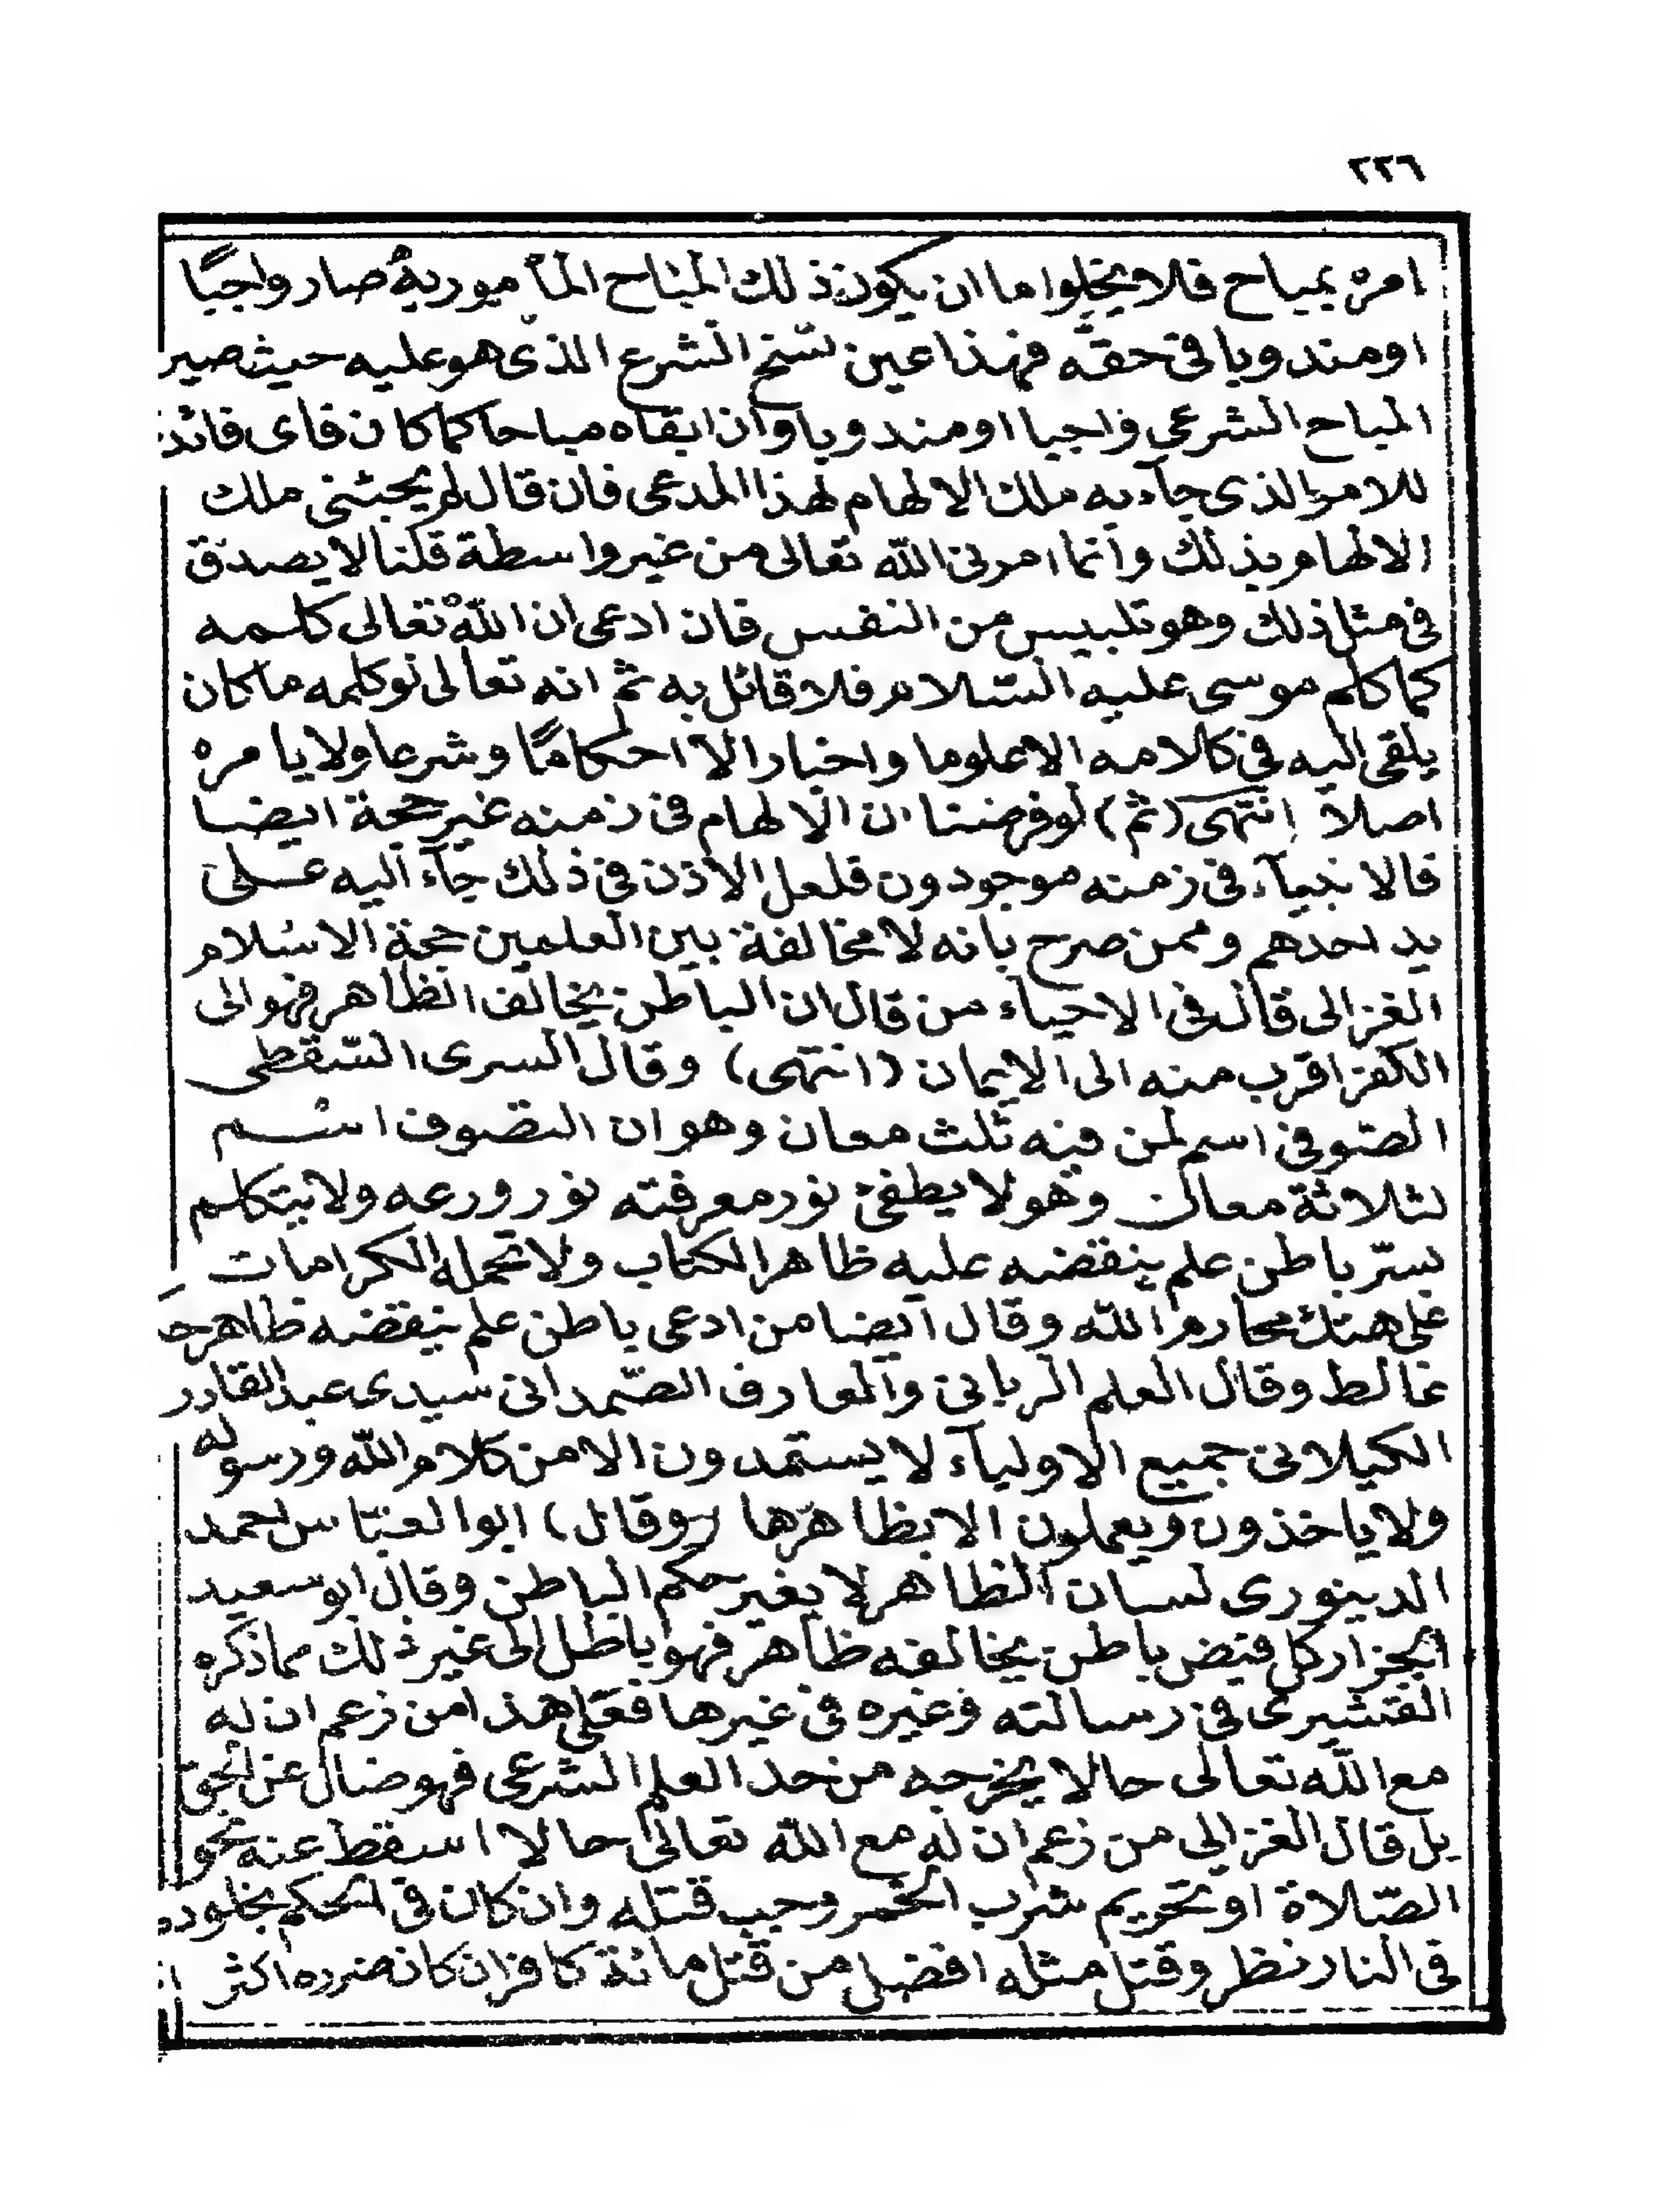 ٢٢٦
امره بمباح فلا يخلوا ما ان يكون ذلك المباح المأمور به صار واجبًا
او مندوبا فى حقه فهذا عين نسخ الشرع الذى هو عليه حيث صير
المباح الشرعى واجبا او مندوبا وان ابقاه مباحا كما كان فاى فائدة
للامر الذى جآء به ملك الالهام لهذا المدعى فان قال لم يجئنى ملك
الالهام بذلك وانما امرنى الله تعالى من غير واسطة قلنا لا يصدق
فى مثل ذلك وهو تلبيس من النفس فان ادعى ان الله تعالى كلمه
كما كلم موسى عليه السّلام فلا قائل به ثم انه تعالى لو كلمه ما كان
يلقى اليه فى كلامه الا علوما واخبارا لا احكامًا وشرعا ولا يامره
اصلا انتهى (ثم) لو فرضنا ان الالهام فى زمنه غير حجة ايضا
فالانبيآء فى زمنه موجودون فلعل الاذن فى ذلك جآء اليه على
يد احدهم وممن صرح بانه لا مخالفة بين العلمين حجة الاسلام
الغزالى قال فى الاحياء من قال ان الباطن يخالف الظاهر فهو الى
الكفر اقرب منه الى الايمان (انتهى) وقال السرى السّقطى
الصّوفى اسم لمن فيه ثلث معان وهو ان التصوف اسم
لثلاثة معان وهو لا يطفئ نور معرفته نور ورعه ولا يتكلم
بسرّ باطن علم ينقضه عليه ظاهر الكتاب ولا تحمله الكرامات
على هتك محارم الله وقال ايضا من ادعى باطن علم ينقضه ظاهر حـ
غالط وقال العلم الربانى والعارف الصّمدانى سيدى عبد القادر
الكيلانى جميع الاوليآء لا يستمدون الا من كلام الله ورسوله
ولا ياخذون ويعملون الا بظاهرها (وقال) ابو العبّاس احمد
الدينورى لسان الظاهر لا يغير حكم الباطن وقال ابو سعيد
الخزار كل فيض باطن يخالفه ظاهر فهو باطل الى غير ذلك مما ذكره
القشيرى فى رسالته وغيره فى غيرها فعلى هذا من زعم ان له
مع الله تعالى حالا يخرجه من حد العلم الشرعى فهو ضال عن الحق
بل قال الغزالى من زعم ان له مع الله تعالى حالا اسقط عنه نحو
الصّلاة او تحريم شرب الخمر وجب قتله وان كان فى الحكم بخلوده
فى النار نظر وقتل مثله افضل من قتل مائة كافر ان كان ضرره اكثر